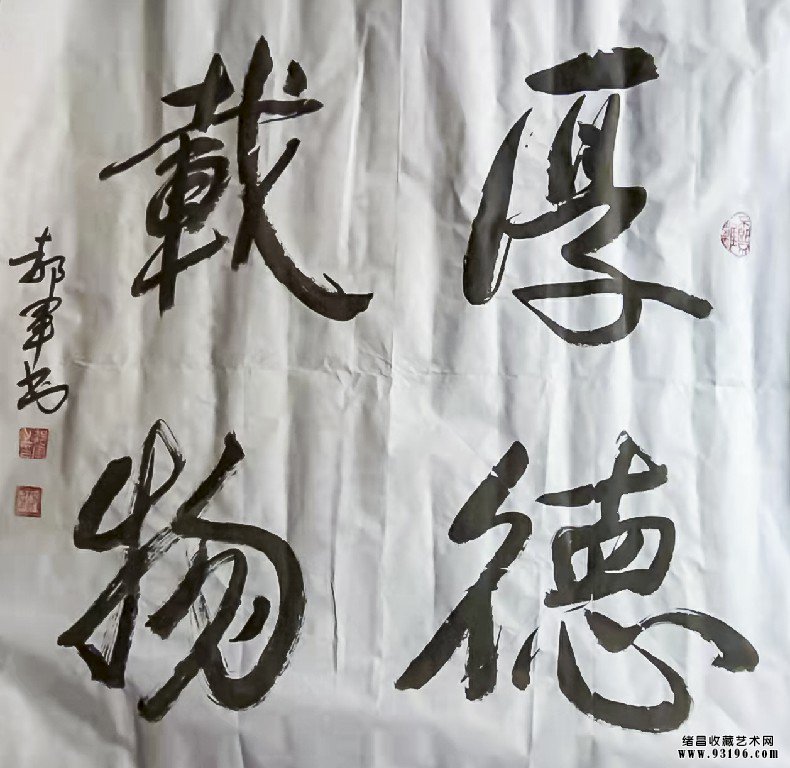 厚德
載物
郝軍书
绪昌收藏艺术网
www.93196.com